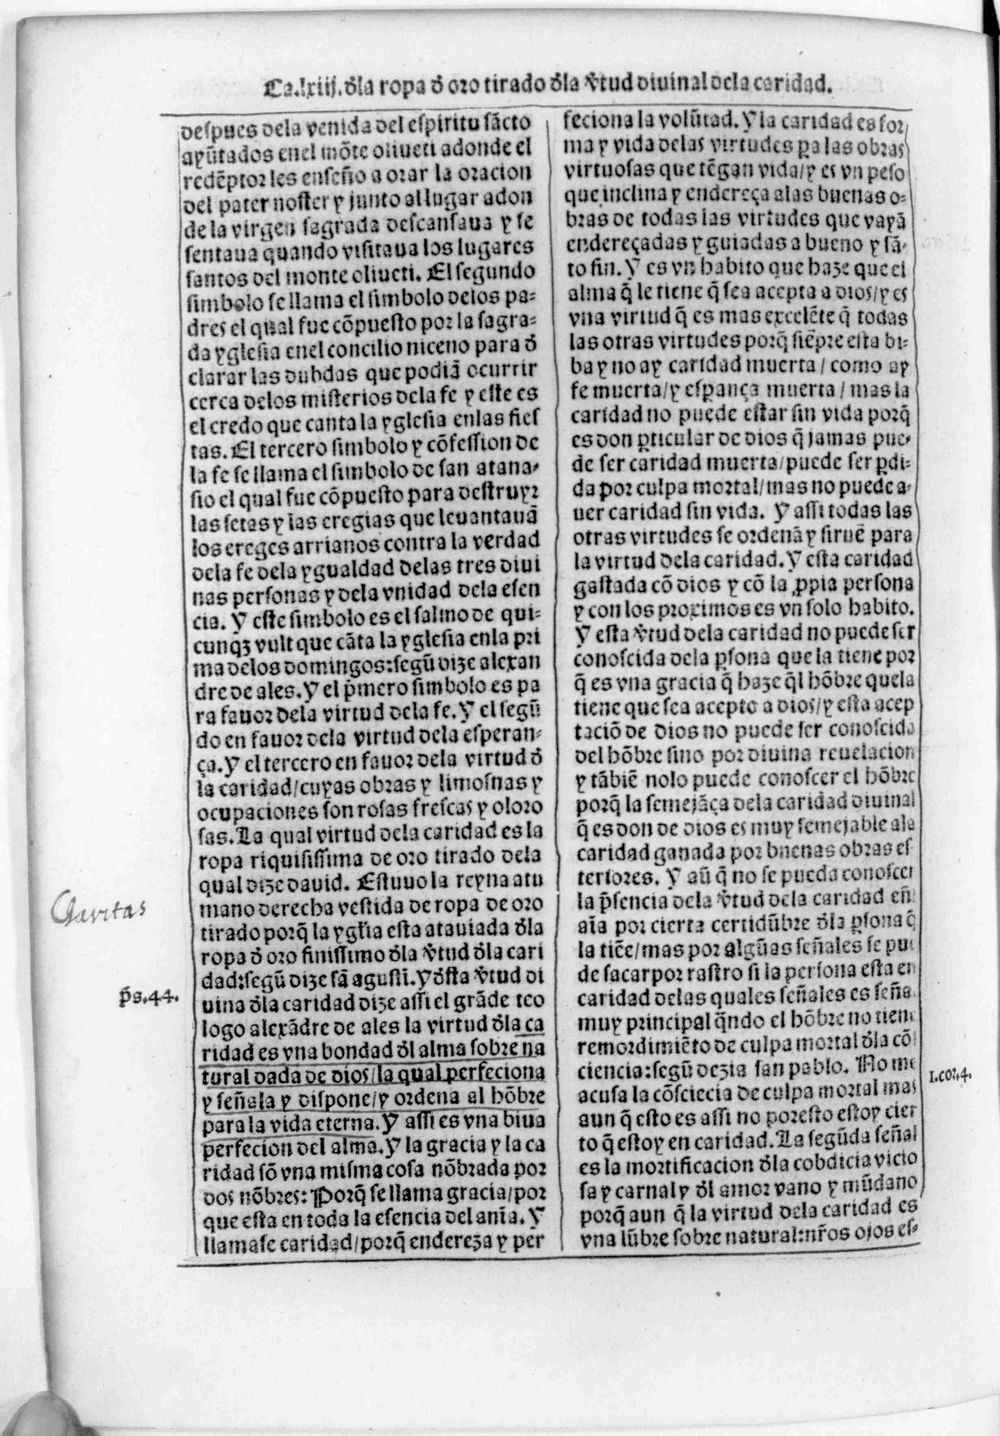 Ca.lxiij.đla ropa đ oro tirado đla v̄tud diuinal dela caridad.
despues dela venida del espiritu sãcto
ayũtados enel mõte oliueti adonde el
redẽptor les enseño a orar la oracion
del pater noster y junto al lugar adon
de la virgen sagrada descansaua y se
sentaua quando visitaua los lugares
santos del monte oliueti. El segundo
simbolo se llama el simbolo delos pa-
dres el qual fue cõpuesto por la sagra-
da yglesia enel concilio niceno para đ
clarar las dubdas que podiã ocurrir
cerca delos misterios dela fe y este es
el credo que canta la yglesia enlas fies
tas. El tercero simbolo y cõfession de
la fe se llama el simbolo de san atana-
sio el qual fue cõpuesto para destruyr
las setas y las eregias que leuantauã
los ereges arrianos contra la verdad
dela fe dela ygualdad delas tres diui
nas personas y dela vnidad dela esen
cia. Y este simbolo es el salmo de qui-
cunqz vult que cãta la yglesia enla pri
ma delos domingos:segũ dize alexan
dre de ales. Y el p̃mero simbolo es pa
ra fauor dela virtud dela fe. Y el segũ
do en fauor dela virtud dela esperan-
ça. Y el tercero en fauor dela virtud đ
la caridad/cuyas obras y limosnas y
ocupaciones son rosas frescas y oloro
sas. La qual virtud dela caridad es la
ropa riquisissima de oro tirado dela
qual dize dauid. Estuuo la reyna a tu
mano derecha vestida de ropa de oro
tirado porq̃ la ygl̃ia esta atauiada đla
ropa đ oro finissimo đla v̄tud đla cari
dad:segũ dize sã agustĩ. Y đsta v̄tud di
uina đla caridad dize assi el grãde teo
logo alexãdre de ales la virtud đla ca
ridad es vna bondad đl alma sobre na
tural dada de dios/la qual perfeciona
y señala y dispone/y ordena al hõbre
para la vida eterna. Y assi es vna biua
perfecion del alma. Y la gracia y la ca
ridad sõ vna misma cosa nõbrada por
dos nõbres: Porq̃ se llama gracia/por
que esta en toda la esencia del anĩa. Y
llamase caridad/porq̃ endereza y per
Charitas
p̃s.44.
feciona la volũtad. Y la caridad es for
ma y vida delas virtudes p̱a las obras
virtuosas que tẽgan vida/y es vn peso
que inclina y endereça alas buenas o-
bras de todas las virtudes que vayã
endereçadas y guiadas a bueno y sã-
to fin. Y es vn habito que haze que el
alma q̃ le tiene q̃ sea acepta a dios/y es
vna virtud q̃ es mas excelẽte q̃ todas
las otras virtudes porq̃ siẽpre esta bi-
ba y no ay caridad muerta/como ay
fe muerta/y esp̱ança muerta/mas la
caridad no puede estar sin vida porq̃
es don p̱ticular de dios q̃ jamas pue-
de ser caridad muerta/puede ser p̱di-
da por culpa mortal/mas no puede a-
uer caridad sin vida. Y assi todas las
otras virtudes se ordenã y siruẽ para
la virtud dela caridad. Y esta caridad
gastada cõ dios y cõ la p̱pia persona
y con los proximos es vn solo habito.
Y esta v̄tud dela caridad no puede ser
conoscida dela p̱sona que la tiene por
q̃ es vna gracia q̃ haze q̃l hõbre quela
tiene que sea acepto a dios/y esta acep
taciõ de dios no puede ser conoscida
del hõbre sino por diuina reuelacion
y tãbiẽ nolo puede conoscer el hõbre
porq̃ la semejãça dela caridad diuinal
q̃ es don de dios es muy semejable ala
caridad ganada por buenas obras es
teriores. Y aũ q̃ no se pueda conoscer
la p̃sencia dela v̄tud dela caridad en l̃
aĩa por cierta certidũbre đla p̱sona q̃
la tiẽe/mas por algũas señales se pue
de sacar por rastro si la persona esta en
caridad delas quales señales es seña
muy principal q̃ndo el hõbre no tiene
remordimiẽto de culpa mortal đla cõ
ciencia:segũ dezia san pablo. No me
acusa la cõsciecia de culpa mortal mas
aun q̃ esto es assi no por esto estoy cier
to q̃ estoy en caridad. La segũda señal
es la mortificacion đla cobdicia vicio
sa y carnal y đl amor vano y mũdano
porq̃ aun q̃ la virtud dela caridad es
vna lũbre sobre natural:nr̃os ojos es-
1.cor.4.